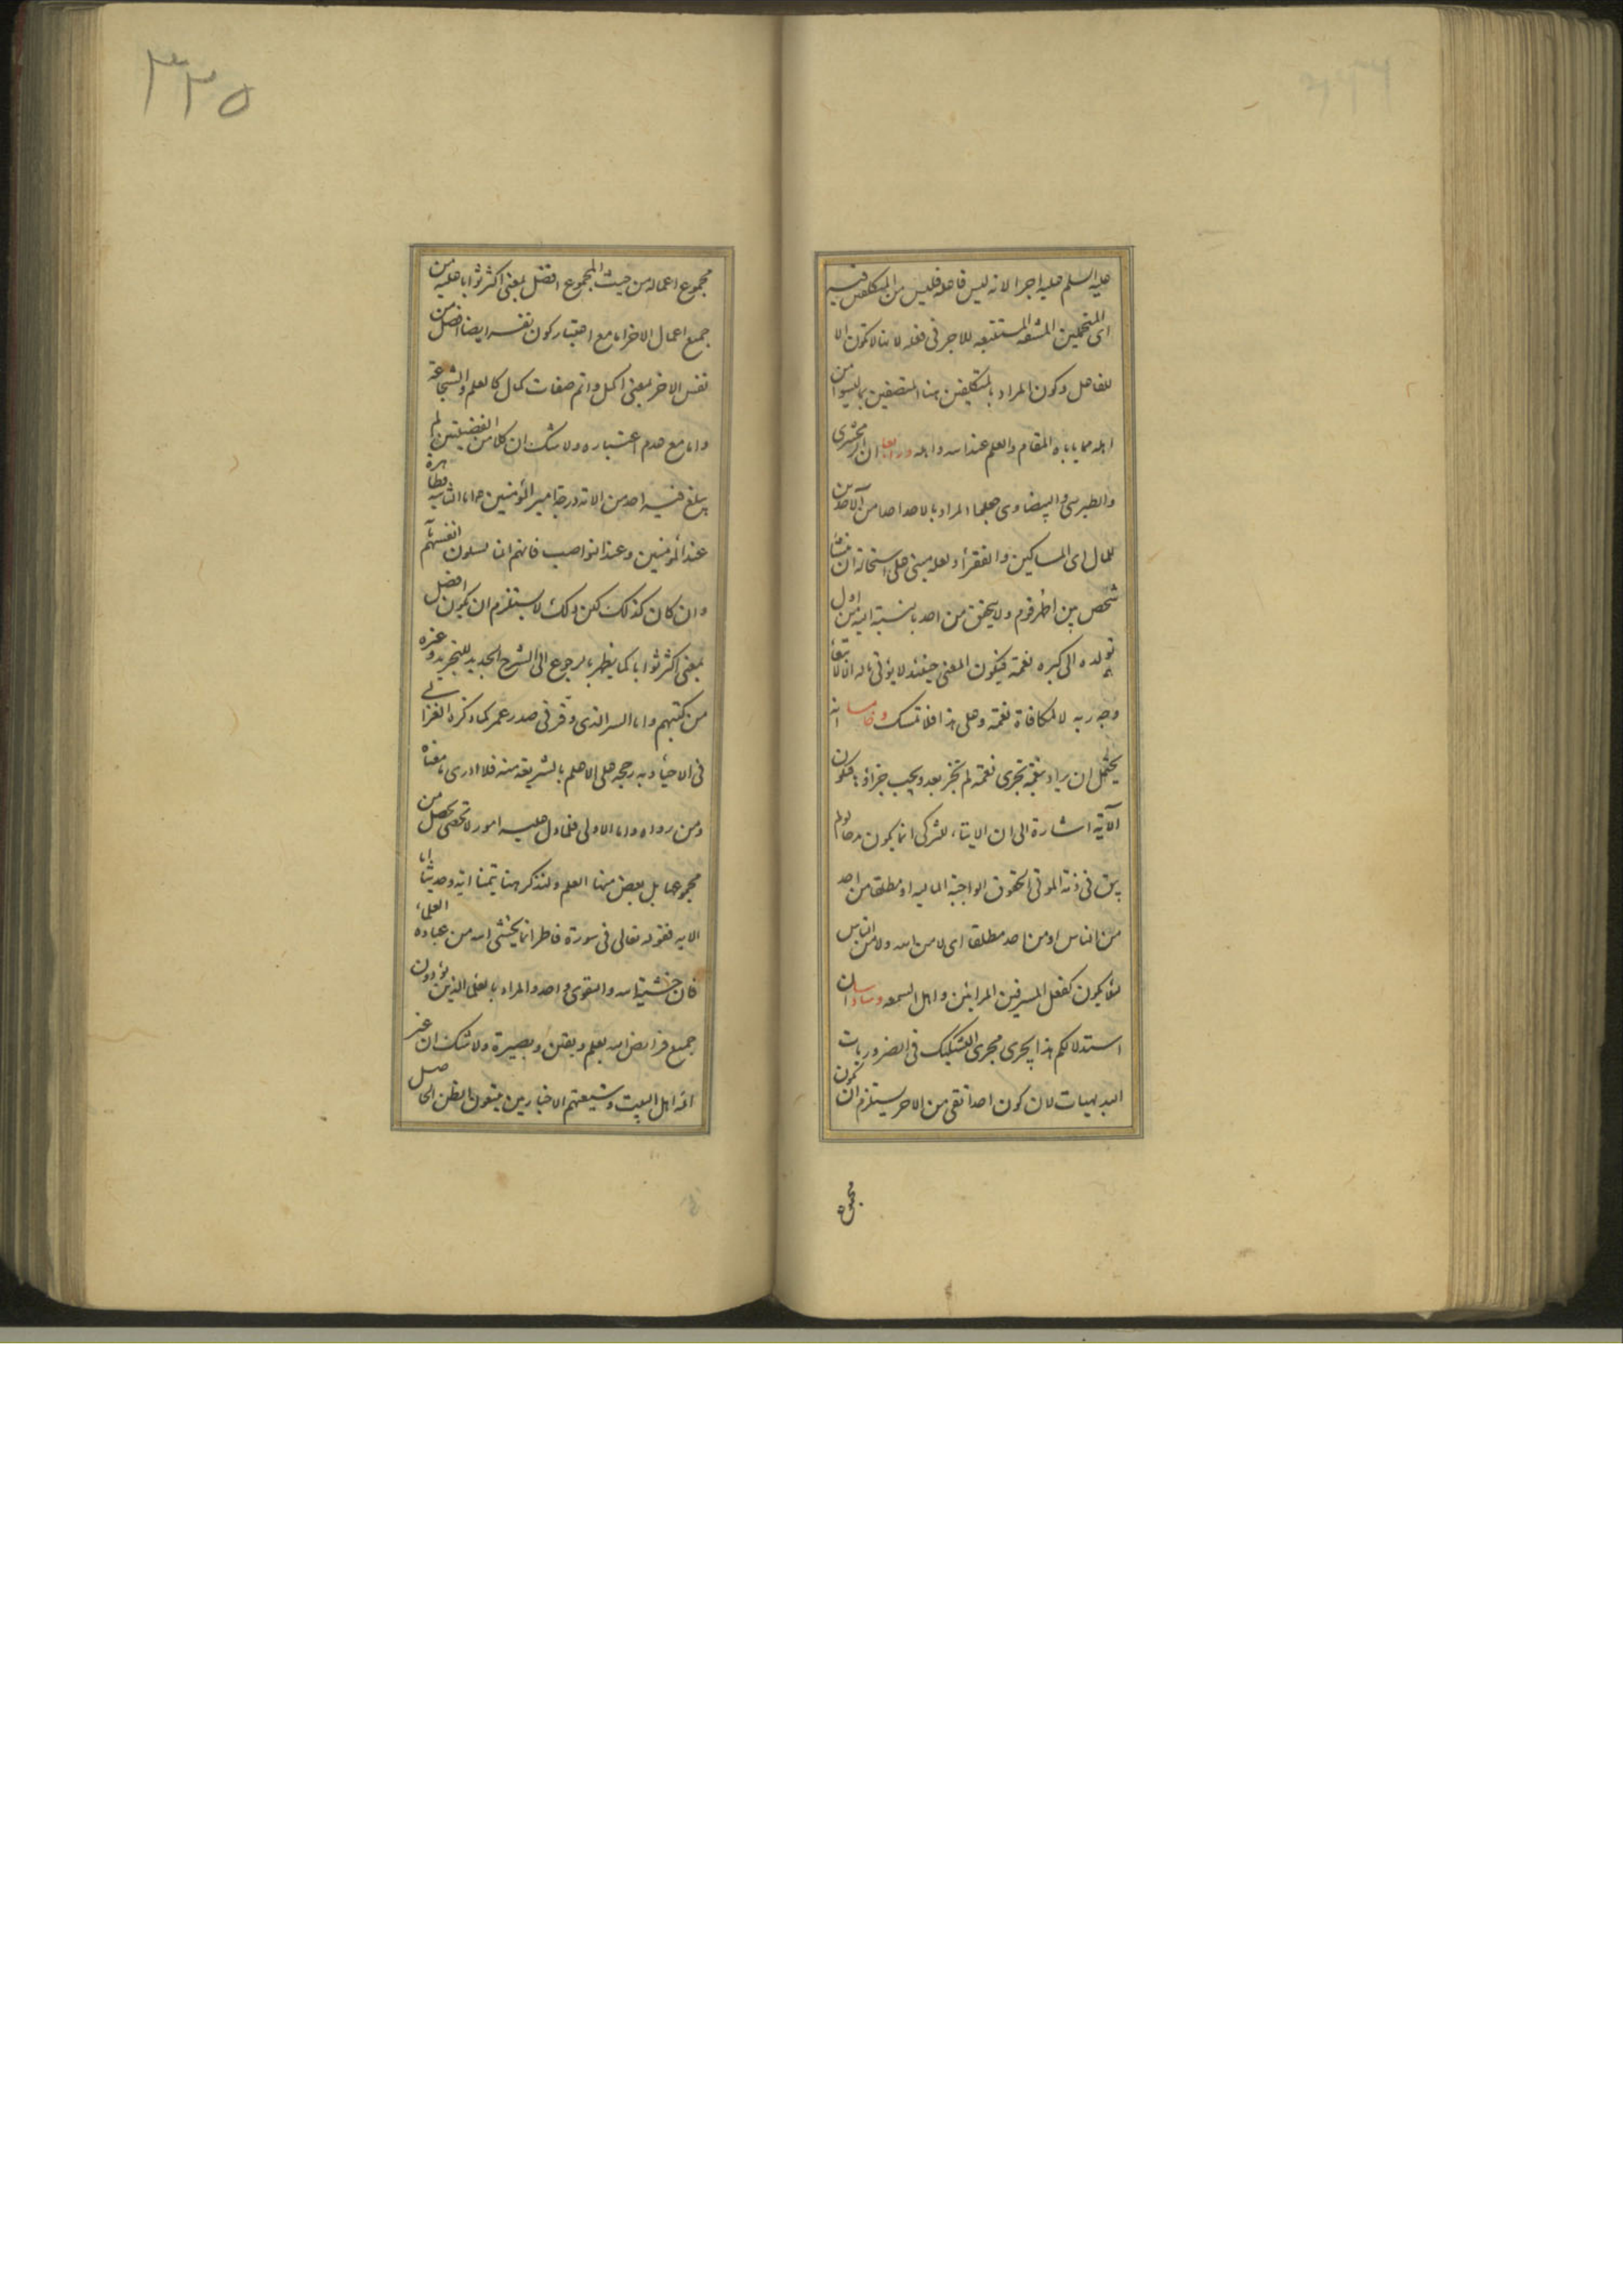 عليه السلم عليه اجرا لانه ليس فاعله فليس من المتكلفين فيه
اى المتحملين المشقه المستتبعه للاجر فى فعله لانها لا تكون الا
للفاعل وكون المراد بالمتكلفين هنا المتصفين بما ليسوا من
اهله مما ياباه المقام والعلم عند الله واهله ورابعا ان الزمخشرى
والطبرسى والبيضاوى جعلوا المراد بالاحد احدا من الآخذين
للمال اى المساكين والفقرأ ولعله مبنى على استحالة ان ينشأ
شخص بين اظهر قوم ولا يتحقق من احد بالنسبة اليه من اول
تولده الى كبره نعمة فيكون المعنى حينئذ لا يؤتى ماله الا لابتغاء
وجه ربه لا لمكافاة نعمة وعلى هذا فلا تمسك وخامسا انه
يحتمل ان يراد بنعمة تجزى نعمة لم تجز بعد ويجب جزاؤها فيكون
الآية اشارة الى ان الايتاء للتزكى انما يكون مدحا لو لم
يبق فى ذمة الموتى الحقوق الواجبة الماليه او مطلقا من احد
من الناس او من احد مطلقا اى لا من الله ولا من الناس
لئلا يكون كفعل المسرفين المرائين واهل السمعه وسادسا ان
استدلالكم هذا يجرى مجرى التشكيك فى الضروريات
البديهيات لان كون احد اتقى من الاخر يستلزم ان يكون
مجموع
٣٣٥
مجموع اعماله من حيث المجموع افضل بمعنى اكثر ثوابا عليه من
جميع اعمال الاخر اما مع اعتبار كون نفسه ايضا افضل من
نفس الاخر بمعنى اكمل واتم صفات كمال كالعلم والشجاعة
واما مع عدم اعتباره ولا شك ان كلا من الفضيلتين لم
يبلغ فيه احد من الامة درجة امير المؤمنين ع اما الثانيه فظاهرة
عند المؤمنين وعند النواصب فانهم ان يسلون انفسهم بانه
وان كان كذلك لكن ذلك لا يستلزم ان يكون افضل
بمعنى اكثر ثوابا كما يظهر بالرجوع الى الشرح الجديد للتجريد وغيره
من كتبهم واما السر الذى وقر فى صدر عمر كما ذكره الغزالى
فى الاحيأ وبه رجحه على الاعلم بالشريعه منه فلا ادرى ما معناه
ومن رواه واما الاولى فلما دل عليه امور لا تحصى يحصل من
مجموعها بل بعض منها العلم ولنذكر هنا تيمنا اية وحديثا اما
الايه فقوله تعالى فى سورة فاطر انما يخشى الله من عباده العلماء
فان خشية الله والتقوى واحد والمراد بالعلما الذين يؤدون
جميع فرايض الله بعلم ويقين وبصيرة ولا شك ان غير
ائمة اهل البيت وشيعتهم الاخباريين يتبعون الظن الحاصل